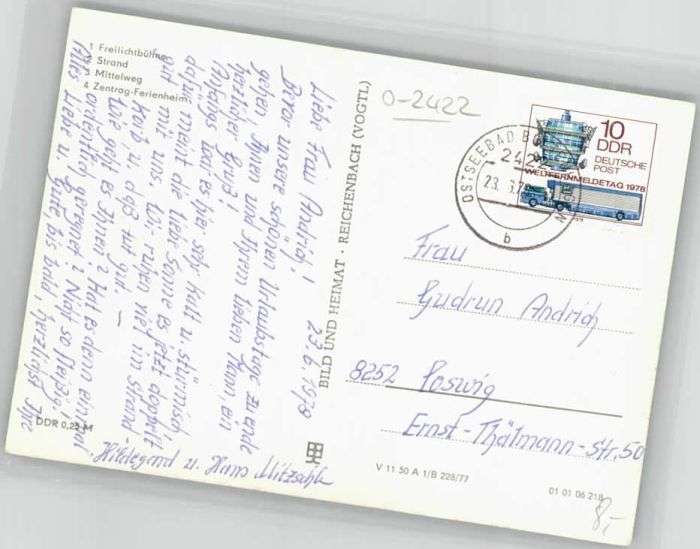 1 Freilichtbühne
Strand
3 Mittelweg
4 Zentrag-Ferienheim
DDR 0,25 M
Liebe Frau Andrich! 23.6.1978
Bevor unsere schönen Urlaubstage zu Ende
gehen, Ihnen und Ihrem lieben Mann, ein
herzlicher Gruß!
Anfangs war es hier sehr kalt u. stürmisch,
dafür meint die liebe Sonne es jetzt doppelt
gut mit uns. Wir ruhen viel im Strand
korb, u. das tut gut. —
Wie geht es Ihnen? Hat es denn einmal
ordentlich geregnet? Nicht so fleißig!
Alles Liebe u. Gute bis bald, herzlichst Ihre
Hildegard u. Hans
BILD UND HEIMAT · REICHENBACH (VOGTL)
0-2422
OSTSEEBAD
242
23.
b
10
DDR
DEUTSCHE
POST
WELTFERNMELDETAG 1978
Frau
Gudrun Andrich
8252 Coswig
Ernst-Thälmann-Str. 50
V 11 50 A 1/B 228/77
01 01 06 218
8,-